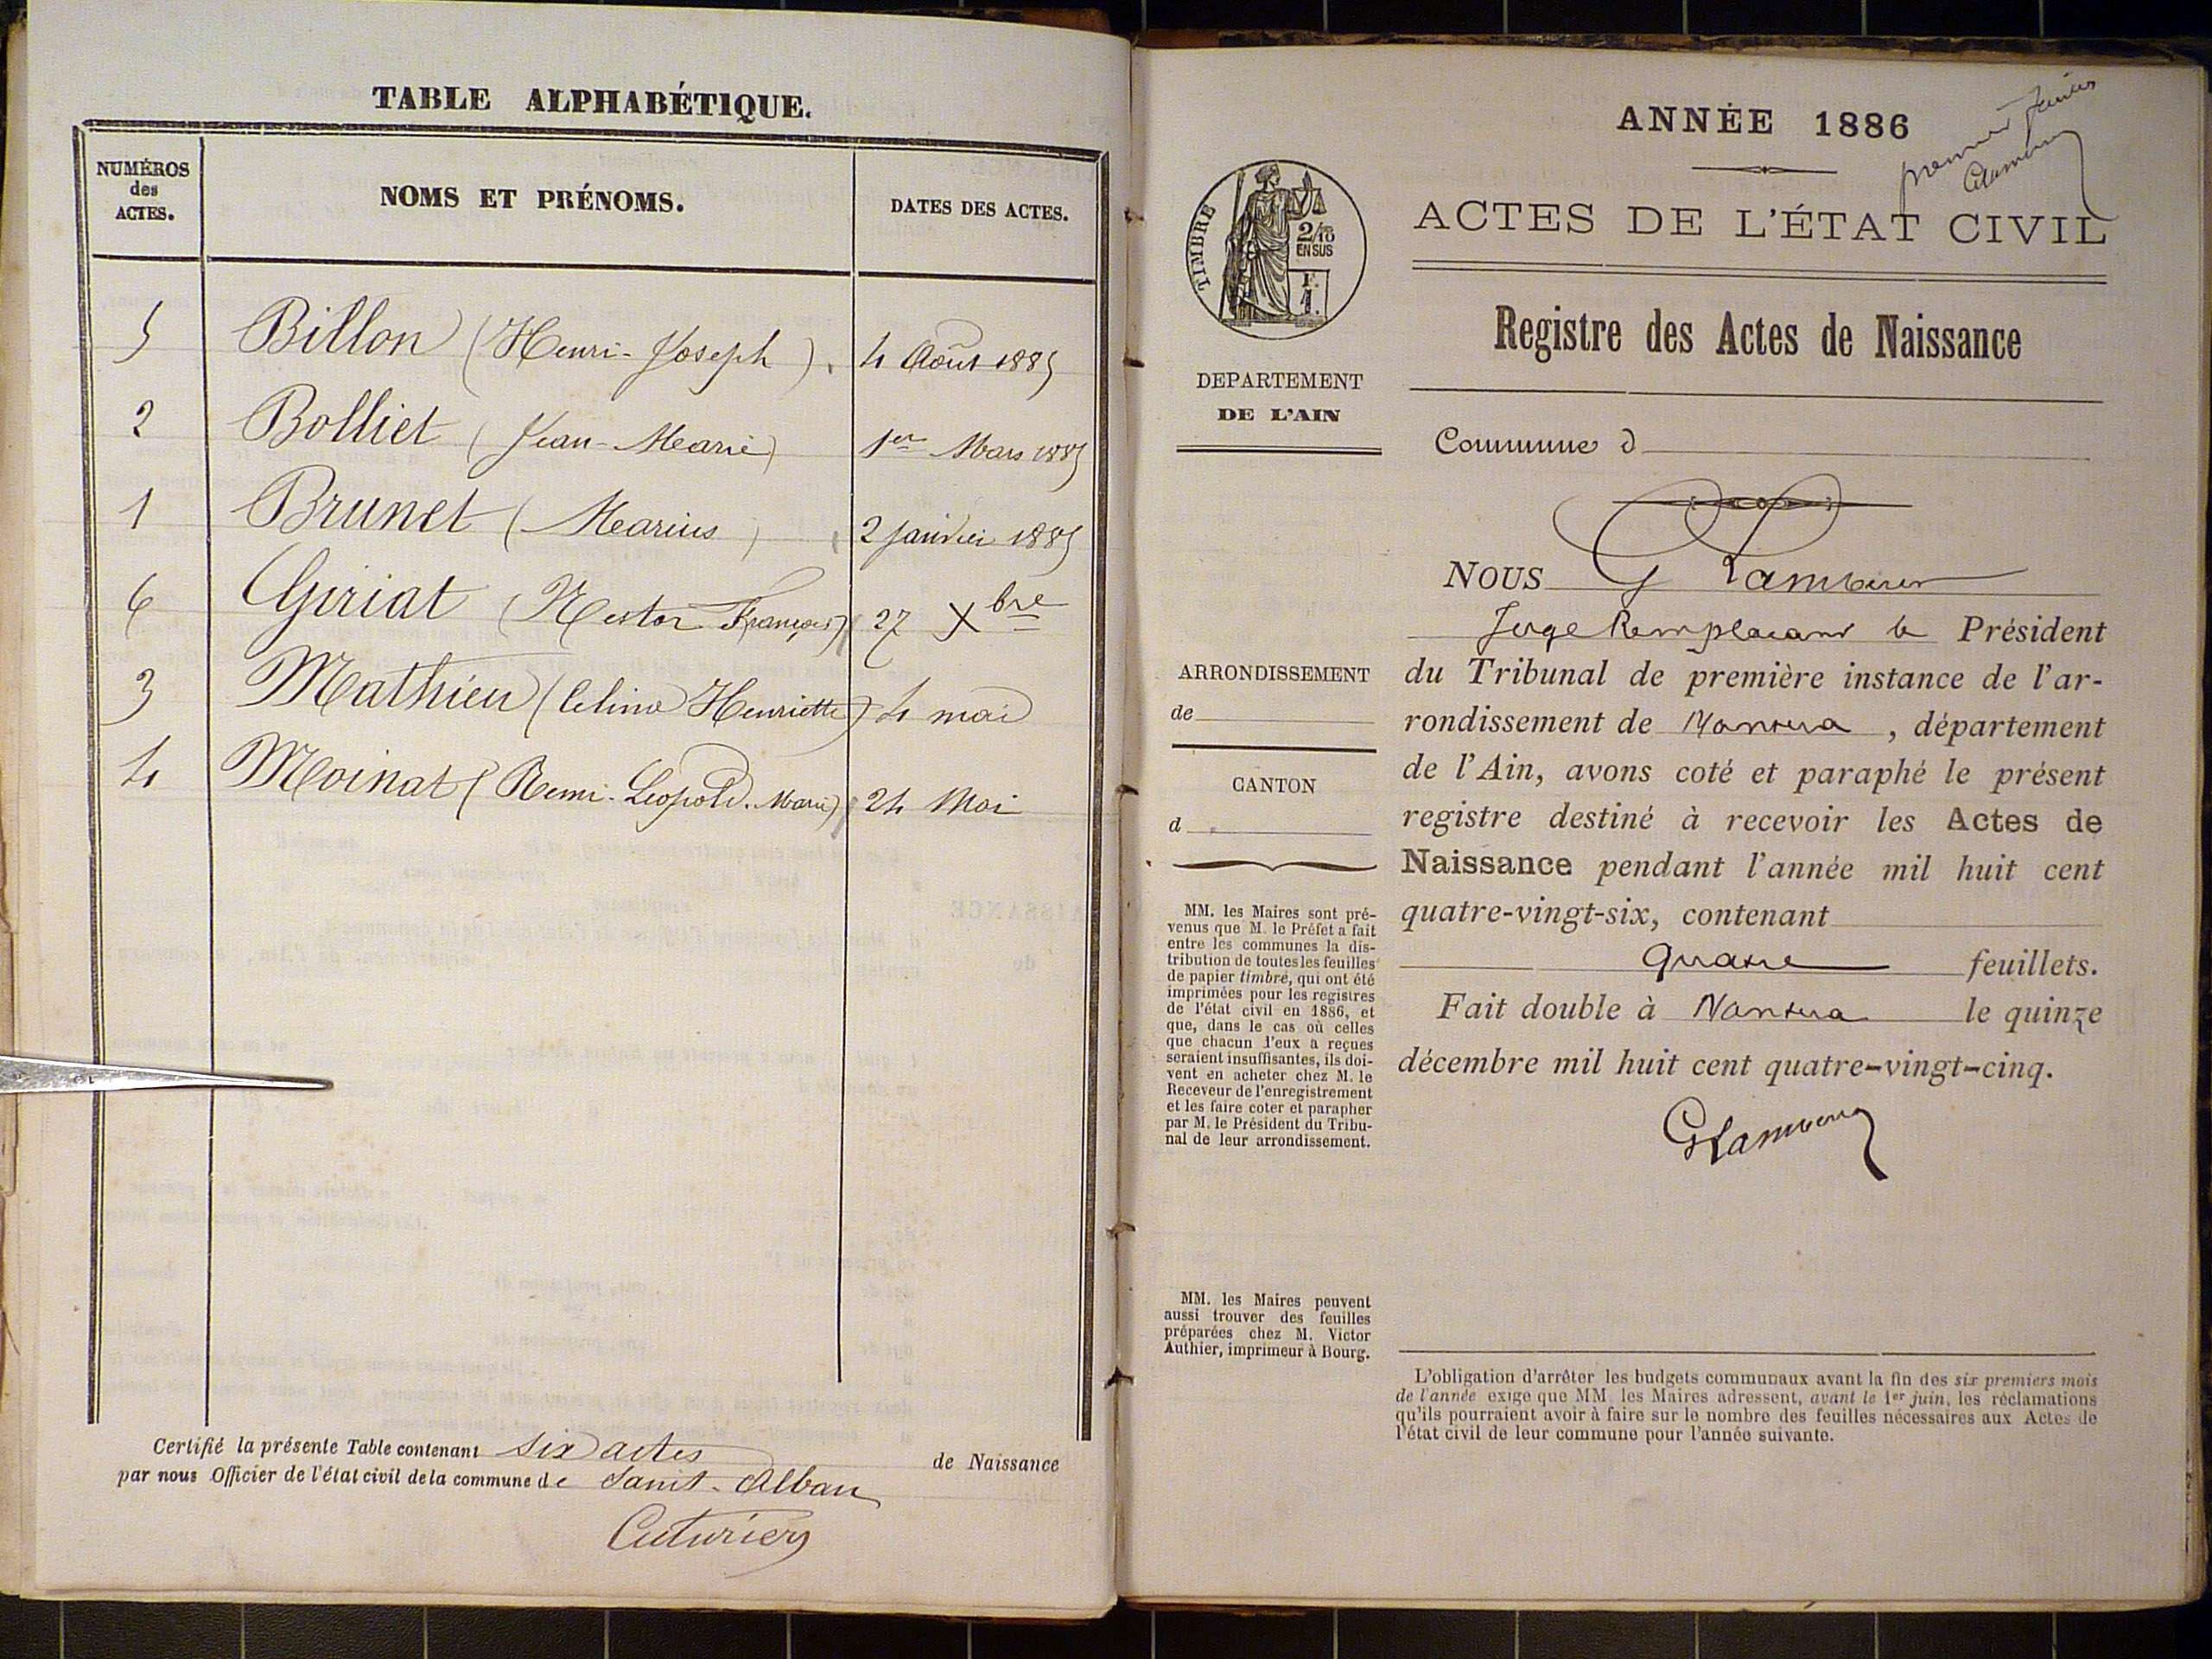 TABLE ALPHABÉTIQUE.
NUMÉROS
des
ACTES.
NOMS ET PRÉNOMS.
DATES DES ACTES.
5 Billon (Henri-Joseph). 4 Août 1885
2 Bolliet (Jean-Marie) 1er Mars 1885
1 Brunet (Marius) 2 Janvier 1885
6 Gyriat (Nestor François) 27 Xbre
3 Mathieu (Celina Henriette) 4 mai
4 Moinat (Remi-Léopold-Marie) 24 Mai
Certifié la présente Table contenant six actes de Naissance
par nous Officier de l'état civil de la commune de Saint-Alban
Cuturier
ANNÉE 1886
premier feuillet
ACTES DE L'ÉTAT CIVIL
TIMBRE
2/10
EN SUS
F.
1.
Registre des Actes de Naissance
DEPARTEMENT
DE L'AIN
Commune d
NOUS G
Juge Remplaçant le Président
ARRONDISSEMENT
de
du Tribunal de première instance de l'ar-
rondissement de Nantua, département
de l'Ain, avons coté et paraphé le présent
CANTON
d
registre destiné à recevoir les Actes de
Naissance pendant l'année mil huit cent
quatre-vingt-six, contenant
quatre feuillets.
Fait double à Nantua le quinze
décembre mil huit cent quatre-vingt-cinq.
MM. les Maires sont pré-
venus que M. le Préfet a fait
entre les communes la dis-
tribution de toutes les feuilles
de papier timbré, qui ont été
imprimées pour les registres
de l'état civil en 1886, et
que, dans le cas où celles
que chacun d'eux a reçues
seraient insuffisantes, ils doi-
vent en acheter chez M. le
Receveur de l'enregistrement
et les faire coter et parapher
par M. le Président du Tribu-
nal de leur arrondissement.
MM. les Maires peuvent
aussi trouver des feuilles
préparées chez M. Victor
Authier, imprimeur à Bourg.
L'obligation d'arrêter les budgets communaux avant la fin des six premiers mois
de l'année exige que MM. les Maires adressent, avant le 1er juin, les réclamations
qu'ils pourraient avoir à faire sur le nombre des feuilles nécessaires aux Actes de
l'état civil de leur commune pour l'année suivante.